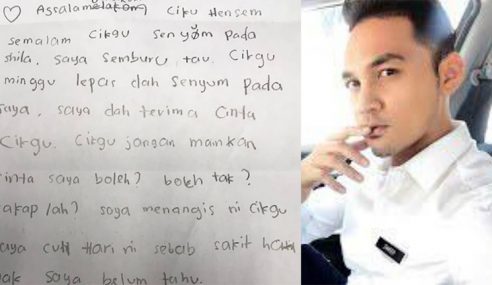 Assalamolakom) Cikgu Hensem
semalam Cikgu senyum pada
shila. saya semburu tau. Cikgu
minggu lepas dah senyum pada
saya. saya dah terima cinta
Cikgu. Cikgu jangan mainkan
cinta saya boleh? boleh tak?
cakap lah? saya menangis ni Cikgu
saya cuti Hari ni sebab sakit
mak saya belum tahu.